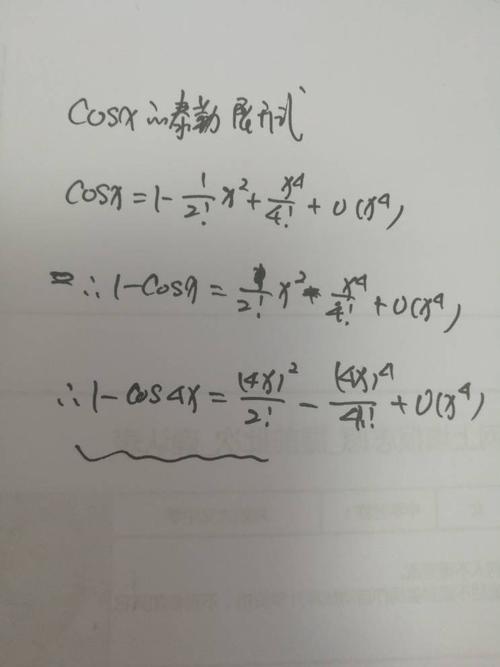 cosx的泰勒展开式
cosx = 1 - 1/2! x² + x⁴/4! + o(x⁴)
∴ 1 - cosx = 1/2! x² - x⁴/4! + o(x⁴)
∴ 1 - cos4x = (4x)²/2! - (4x)⁴/4! + o(x⁴)